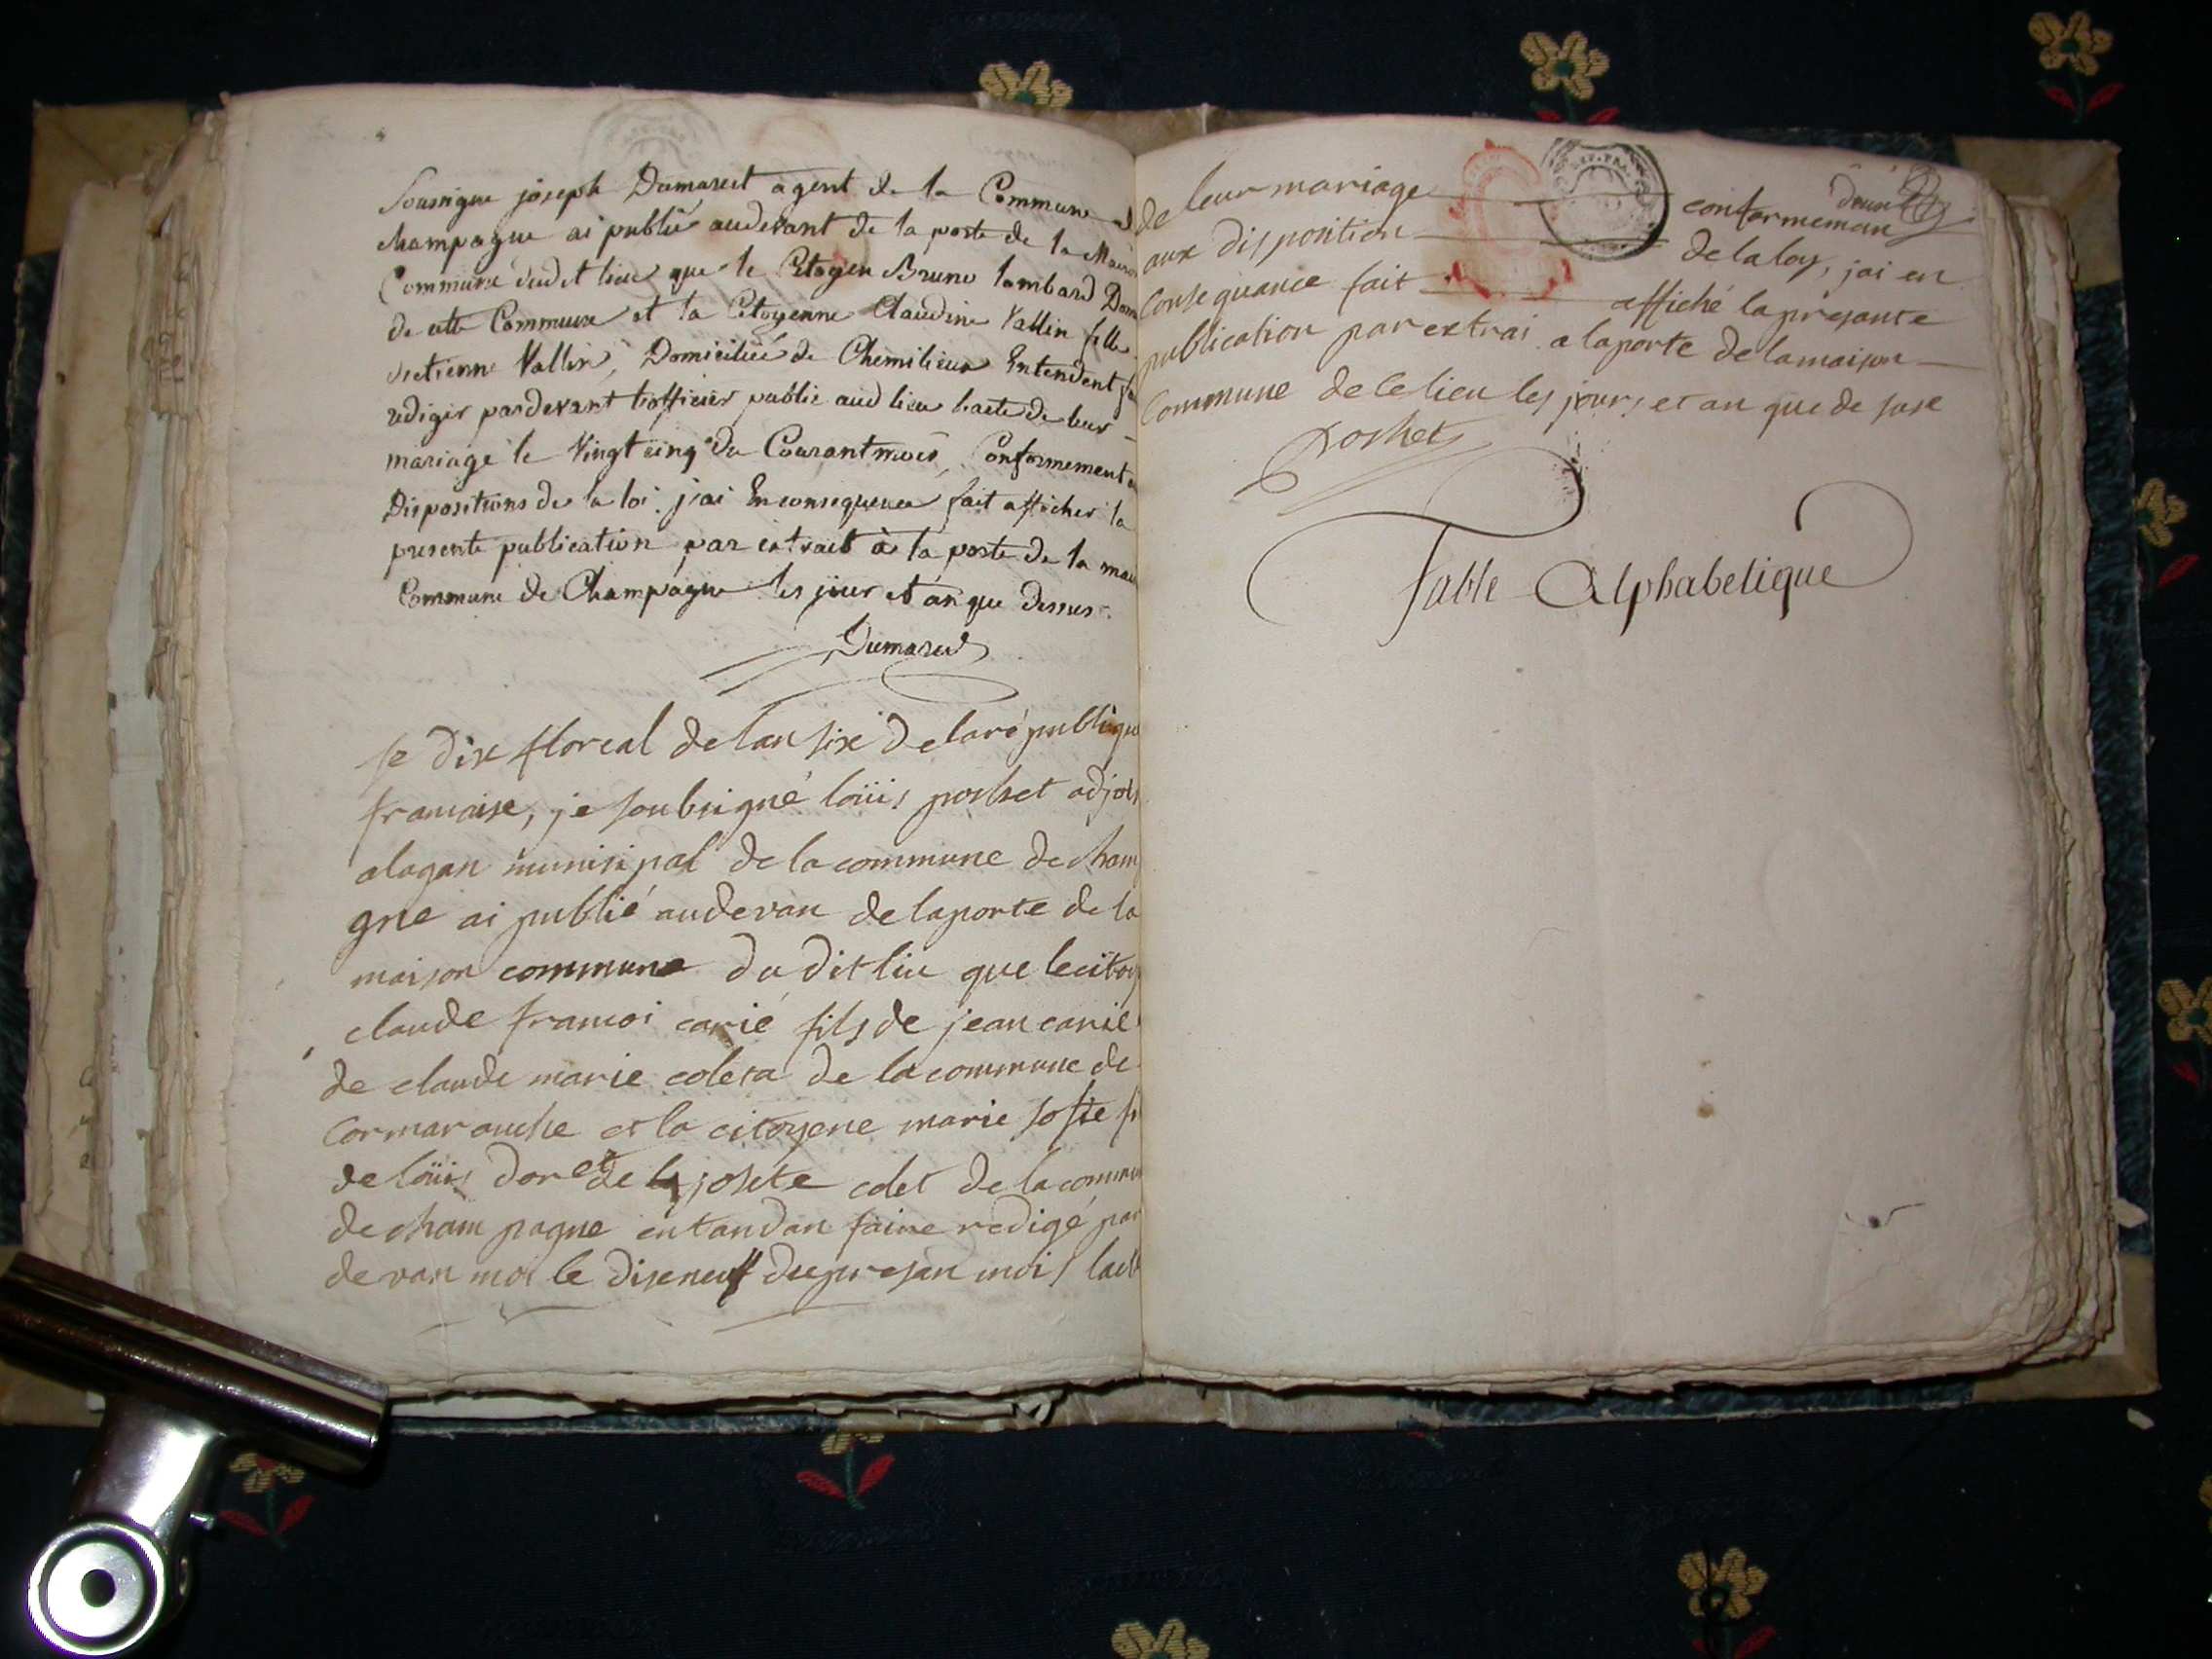 Soussigné joseph Dumarest agent de la Commune de
champagne ai publié audevant de la porte de la Maison
Commune dudit lieu que le Citoyen Bruno lombard Dom
de cette Commune et la Citoyenne Claudine Vallin fille
detienne Vallin, Domiciliée de Chemilieux Entendent
redigir pardevant l'officier public aud lieu l'acte de leur
mariage le Vingt cinq du Courant mois, Conformement
Dispositions de la loi. j'ai En consequence fait afficher la
presente publication par extrait à la porte de la mai
Commune de Champagne les jour et an que Dessus.
Dumarest
le dix floreal de lan sixe de laré publique
francaise, je soubsigné loüis poshet adjoin
alagan munisipal de la commune de cham
gne ai publié audevan de laporte de la
maison commune du dit liu que lecitoy
claude francoi carié fils de jean carié
de claude marie coleta de la commune de
Cormaranche et la citoyene marie sofie
de loüis Dor et de josete colet de la commu
de cham pagne entandan faire redigé par
devan moi le diseneuf du presan mois lact
de leur mariage conformeman
aux disposition de la loy, jai en
Consequance fait affiché la présante
publication par extrai a laporte de la maison
Commune de ce lieu les jours et an que de suse
Poshet
Table Alphabetique